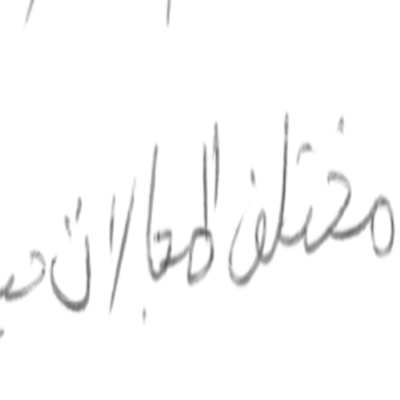 مختلف المجالات